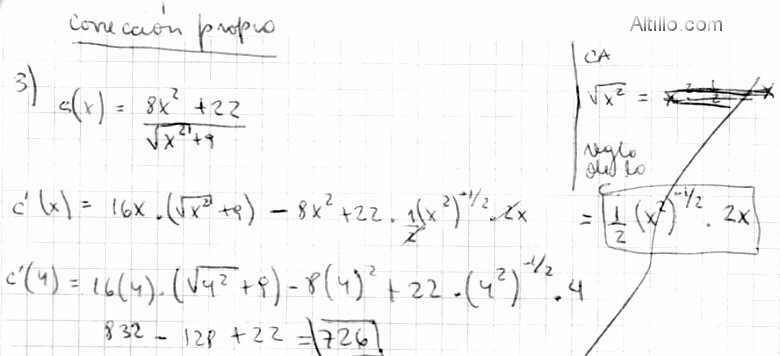 corrección propia
Altillo.com
3) c(x) = 8x² + 22 / √x² + 9
CA
√x² =
regla de la
c'(x) = 16x . (√x² + 9) - 8x² + 22 . 1/2 (x²)^-1/2 . 2x
= 1/2 (x²)^-1/2 . 2x
c'(4) = 16(4) . (√4² + 9) - 8(4)² + 22 . (4²)^-1/2 . 4
832 - 128 + 22 = 726